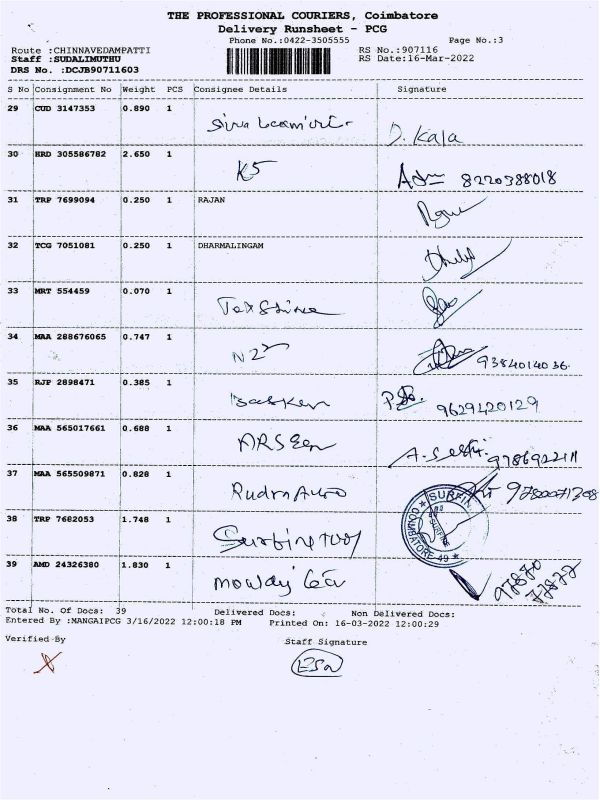 THE PROFESSIONAL COURIERS, Coimbatore
Delivery Runsheet - PCG
Phone No.:0422-3505555 Page No.:3
Route :CHINNAVEDAMPATTI RS No.:907116
Staff :SUDALIMUTHU RS Date:16-Mar-2022
DRS No. :DCJB90711603
S No Consignment No Weight PCS Consignee Details Signature
29 CUD 3147353 0.890 1
D. Kala
30 HRD 305586782 2.650 1
K5 8220388018
31 TRP 7699094 0.250 1 RAJAN
32 TCG 7051081 0.250 1 DHARMALINGAM
33 MRT 554459 0.070 1
34 MAA 288676065 0.747 1
9384014036
35 RJP 2898471 0.385 1
9629420129
36 MAA 565017661 0.688 1
37 MAA 565509871 0.828 1
SURFIN
38 TRP 7682053 1.748 1
COIMBATORE-49
39 AMD 24326380 1.830 1
97870
77877
Total No. Of Docs: 39 Delivered Docs: Non Delivered Docs:
Entered By :MANGAIPCG 3/16/2022 12:00:18 PM Printed On: 16-03-2022 12:00:29
Verified By Staff Signature